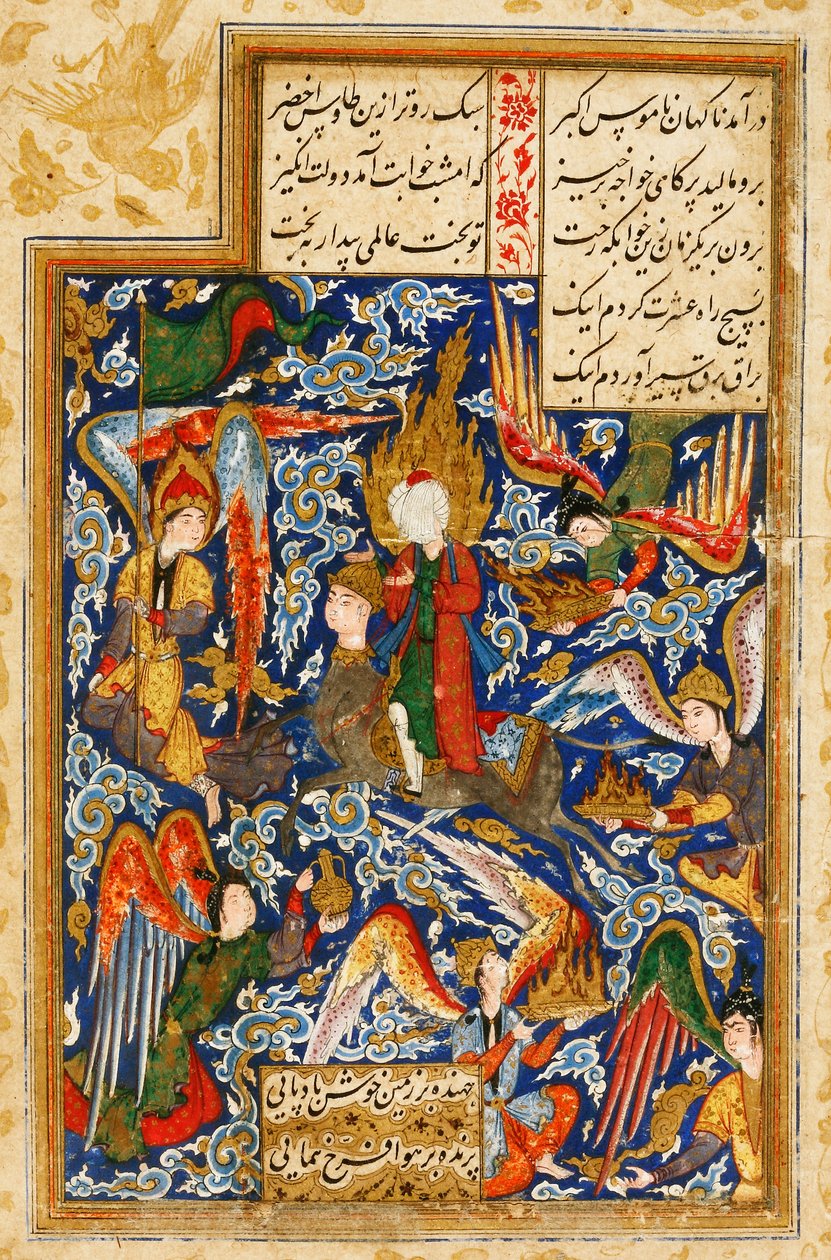 درآمد ناکهان ناموس اکبر سبک روتر ازین طاوس اخضر
برو مالید پر کای خواجه برخیز که امشب خوابت آمد دولت انکیز
برون بر یکزمان زین خوابکه رخت تو بخت عالمی بیدار به بخت
بسیج راه عشرت کردم اینک
براق برق سیر آوردم اینک
جهنده بر زمین خوش باد پایی
پرنده بر هوا فرخ همایی